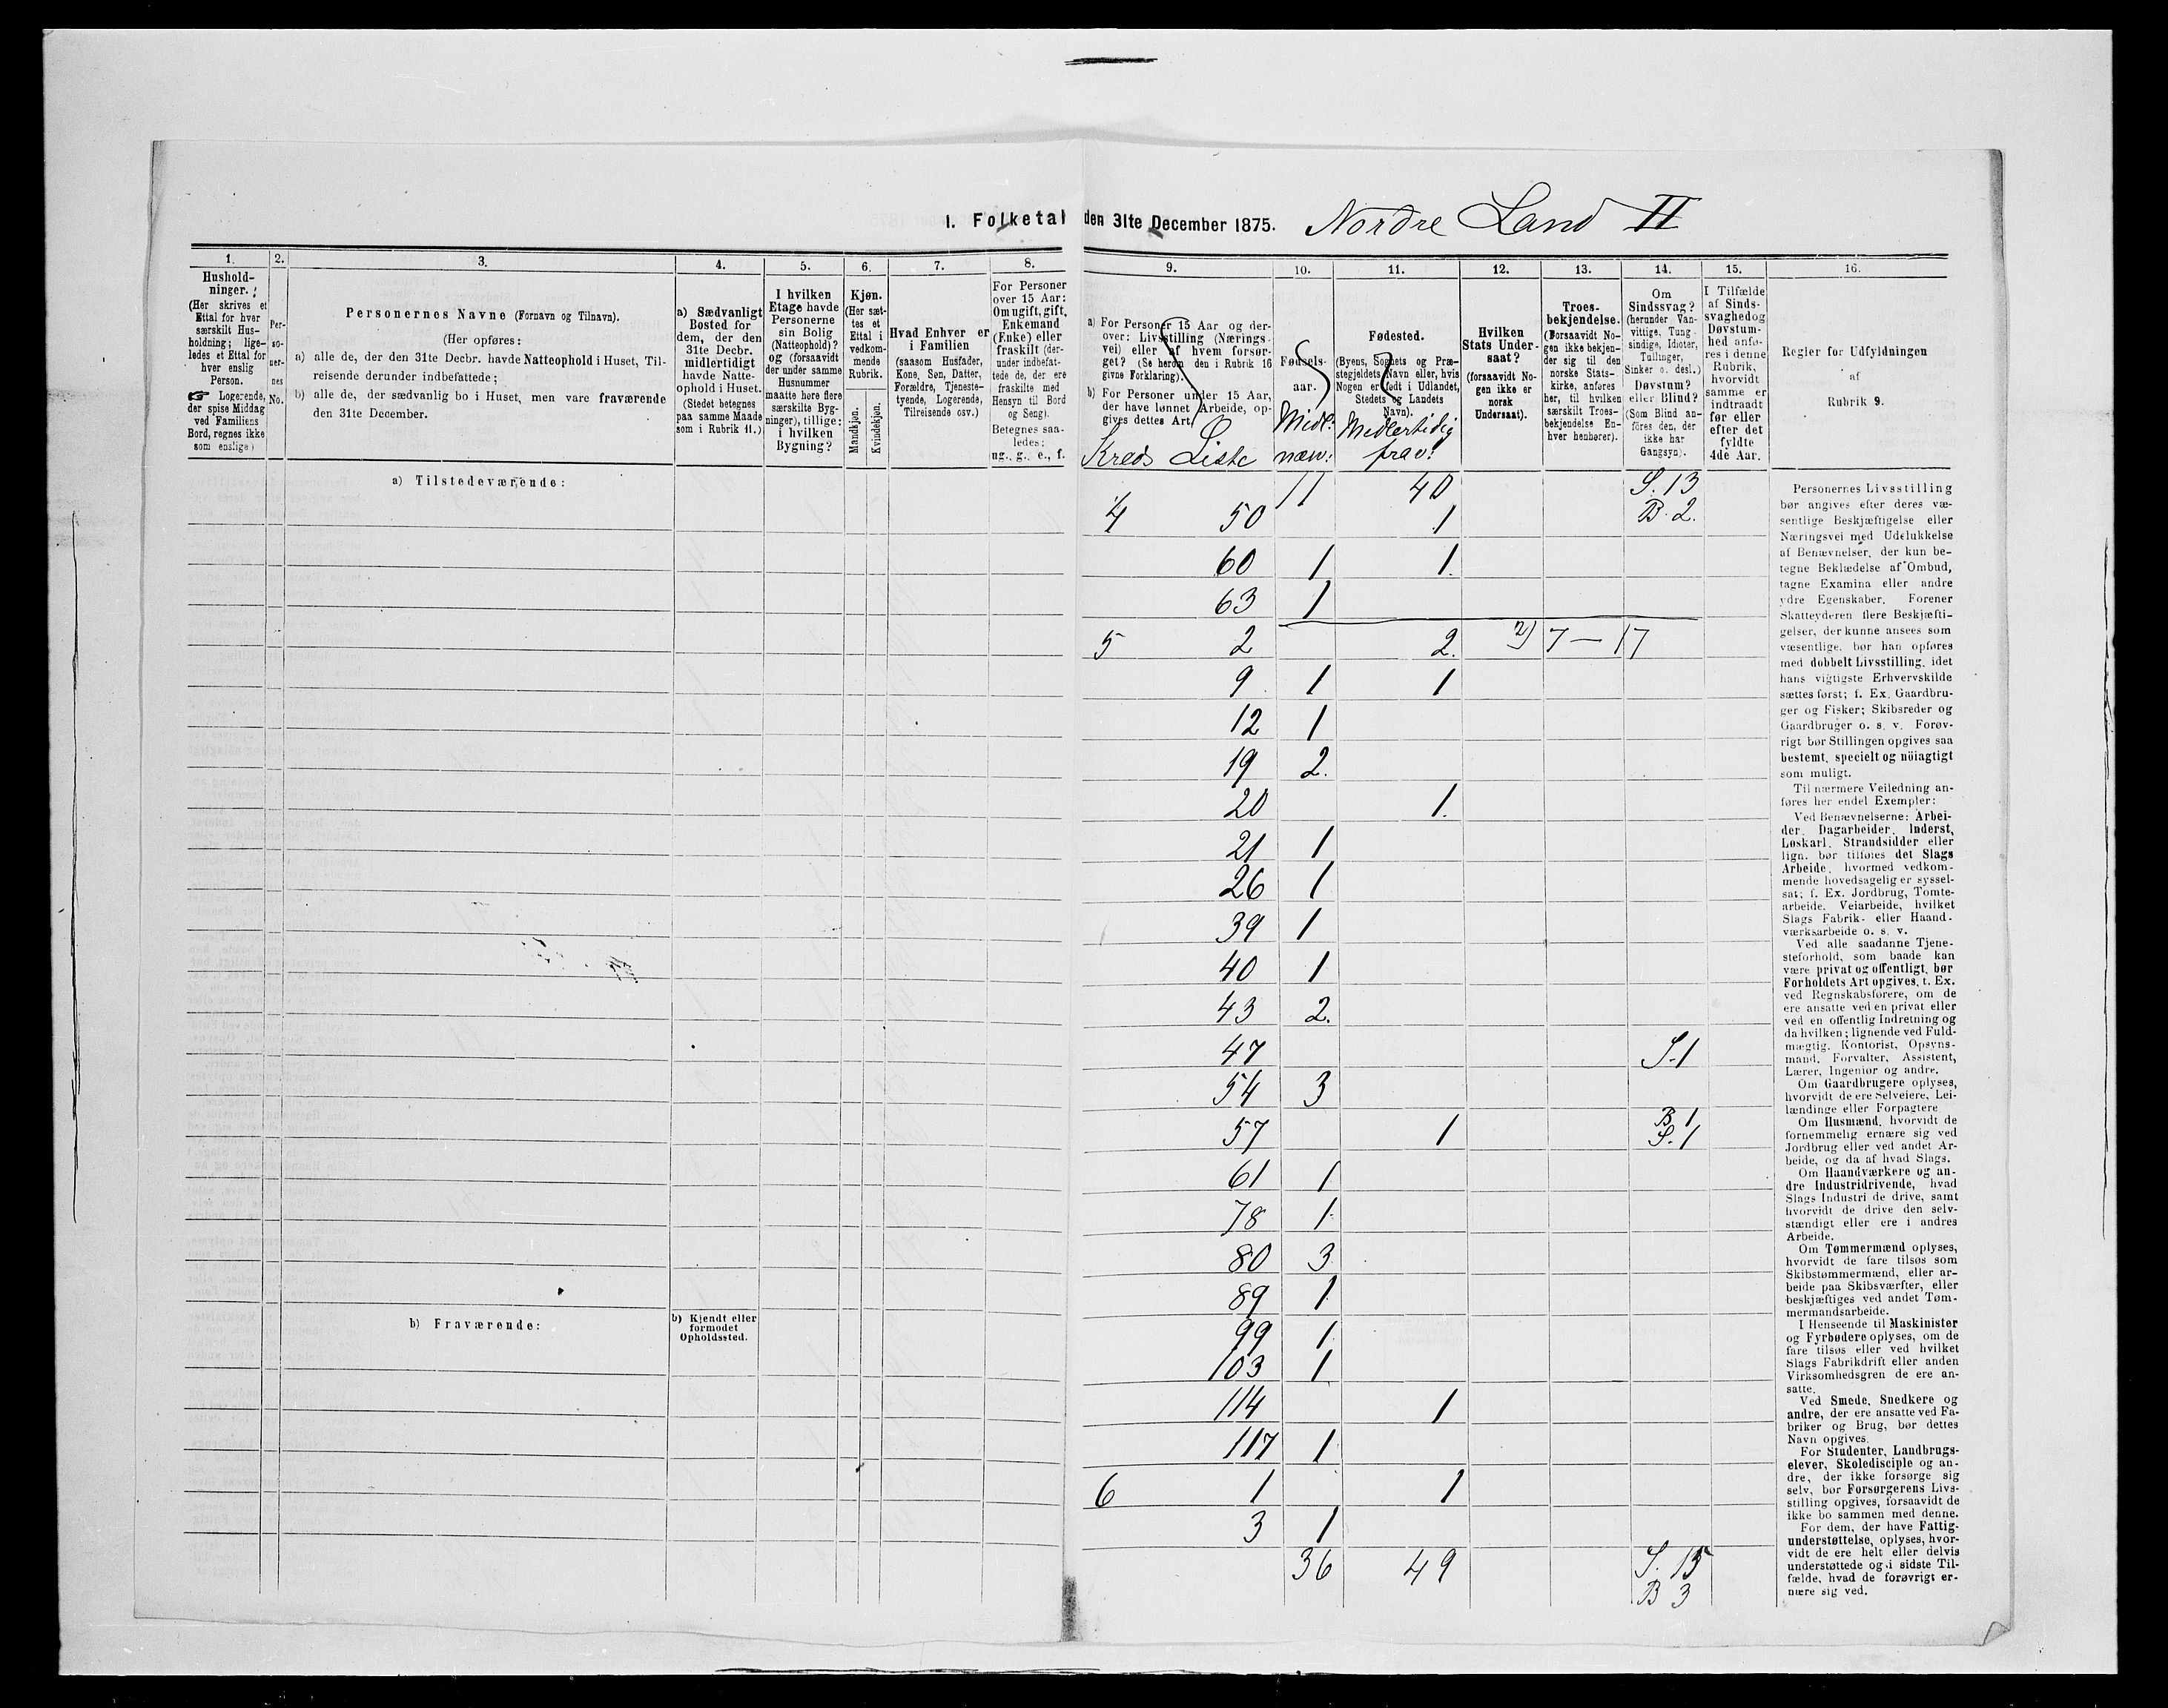 I. Folketal den 31te December 1875. Nordre Land II
1.
Hushold-
ninger.
(Her skrives et
Ettal for hver
særskilt Hus-
holdning; lige-
ledes et Ettal for
hver enslig
Person.
☞ Logerende,
der spise Middag
ved Familiens
Bord, regnes ikke
som enslige)
2.
Per-
so-
ner-
nes
No.
3.
Personernes Navne (Fornavn og Tilnavn).
(Her opføres:
a) alle de, der den 31te Decbr. havde Natteophold i Huset, Til-
reisende derunder indbefattede;
b) alle de, der sædvanlig bo i Huset, men vare fraværende
den 31te December.
4.
a) Sædvanligt
Bosted for
dem, der den
31te Decbr.
midlertidigt
havde Natte-
ophold i Huset.
(Stedet betegnes
paa samme Maade
som i Rubrik 11.)
5.
I hvilken
Etage havde
Personerne
sin Bolig
(Natteophold)?
og (forsaavidt
der under samme
Husnummer
maatte høre flere
særskilte Byg-
ninger), tillige:
i hvilken
Bygning?
6.
Kjøn.
(Her sæt-
tes et
Ettal i
vedkom-
mende
Rubrik.
Mandkjøn.
Kvindekjøn.
7.
Hvad Enhver er
i Familien
(saasom Husfader,
Kone, Søn, Datter,
Forældre, Tjeneste-
tyende, Logerende,
Tilreisende osv.)
8.
For Personer
over 15 Aar:
Om ugift, gift,
Enkemand
(Enke) eller
fraskilt (der-
under indbefat-
tede de, der ere
fraskilte med
Hensyn til Bord
og Seng).
Betegnes saa-
ledes:
ug., g., e., f.
9.
a) For Personer 15 Aar og der-
over: Livsstilling (Nærings-
vei) eller af hvem forsør-
get? (Se herom den i Rubrik 16
givne Forklaring).
b) For Personer under 15 Aar,
der have lønnet Arbeide, op-
gives dettes Art.
Kreds Liste
10.
Fødsels-
aar.
Midl:
nærv:
11.
Fødested.
(Byens, Sognets og Præ-
stegjeldets Navn eller, hvis
Nogen er født i Udlandet,
Stedets og Landets
Navn).
Medlertidig
frav:
12.
Hvilken
Stats Under-
saat?
(forsaavidt No-
gen ikke er
norsk
Undersaat).
13.
Troes-
bekjendelse.
(Forsaavidt No-
gen ikke bekjen-
der sig til den
norske Stats-
kirke, anføres
her, til hvilken
særskilt Troes-
bekjendelse En-
hver henhører).
14.
Om
Sindssvag?
(herunder Van-
vittige, Tung-
sindige, Idioter,
Tullinger,
Sinker o. desl.)
Døvstum?
eller Blind?
(Som Blind an-
føres den, der
ikke har
Gangsyn).
15.
I Tilfælde
af Sinds-
svaghed og
Døvstum-
hed anfø-
res i denne
Rubrik,
hvorvidt
samme er
indtraadt
før eller
efter det
fyldte
4de Aar.
16.
Regler for Udfyldningen
af
Rubrik 9.
a) Tilstedeværende:
11 40 S. 13
4 50 1 B. 2.
60 1 1.
63 1
5 2 2. 2) 7 — 17
9 1 1
12 1
19 2.
20 1.
21 1
26 1
39 1
40 1
43 2.
47 S. 1
54 3
B. 1
57 1 S. 1
61 1
78 1
80 3
89 1
99 1
103 1
114 1
117 1
6 1 1
3 1
36 49 S. 15
B 3
b) Fraværende:
b) Kjendt eller
formodet
Opholdssted.
Personernes Livsstilling
bør angives efter deres væ-
sentlige Beskjæftigelse eller
Næringsvei med Udelukkelse
af Benævnelser, der kun be-
tegne Beklædelse af Ombud,
tagne Examina eller andre
ydre Egenskaber. Forener
Skatteyderen flere Beskjæfti-
gelser, der kunne ansees som
væsentlige, bør han opføres
med dobbelt Livsstilling, idet
hans vigtigste Erhvervskilde
sættes først; f. Ex. Gaardbru-
ger og Fisker; Skibsreder og
Gaardbruger o. s. v. Forøv-
rigt bør Stillingen opgives saa
bestemt, specielt og nöiagtigt
som muligt.
Til nærmere Veiledning an-
føres her endel Exempler:
Ved Benævnelserne: Arbei-
der, Dagarbeider, Inderst,
Løskarl, Strandsidder eller
lign. bør tilføies det Slags
Arbeide, hvormed vedkom-
mende hovedsagelig er syssel-
sat; f. Ex. Jordbrug, Tomte-
arbeide, Veiarbeide, hvilket
Slags Fabrik- eller Haand-
værksarbeide o. s. v.
Ved alle saadanne Tjene-
steforhold, som baade kan
være privat og offentligt, bør
Forholdets Art opgives, t. Ex.
ved Regnskabsførere, om de
ere ansatte ved en privat eller
ved en offentlig Indretning og
da hvilken; lignende ved Fuld-
mægtig, Kontorist, Opsyns-
mand, Forvalter, Assistent,
Lærer, Ingeniør og andre.
Om Gaardbrugere oplyses,
hvorvidt de ere Selveiere, Lei-
lændinge eller Forpagtere
Om Husmænd, hvorvidt de
fornemmelig ernære sig ved
Jordbrug eller ved andet Ar-
beide, og da af hvad Slags.
Om Haandværkere og an-
dre Industridrivende, hvad
Slags Industri de drive, samt
hvorvidt de drive den selv-
stændigt eller ere i andres
Arbeide.
Om Tømmermænd oplyses,
hvorvidt de fare tilsøs som
Skibstømmermænd, eller ar-
beide paa Skibsværfter, eller
beskjæftiges ved andet Tøm-
mermandsarbeide.
I Henseende til Maskinister
og Fyrbødere oplyses, om de
fare tilsøs eller ved hvilket
Slags Fabrikdrift eller anden
Virksomhedsgren de ere an-
satte.
Ved Smede, Snedkere og
andre, der ere ansatte ved Fa-
briker og Brug, bør dettes
Navn opgives.
For Studenter, Landbrugs-
elever, Skoledisciple og an-
dre, der ikke forsørge sig
selv, bør Forsørgerens Livs-
stilling opgives, forsaavidt de
ikke bo sammen med denne.
For dem, der have Fattig-
understøttelse, oplyses, hvor-
vidt de ere helt eller delvis
understøttede og i sidste Til-
fælde, hvad de forøvrigt er-
nære sig ved.